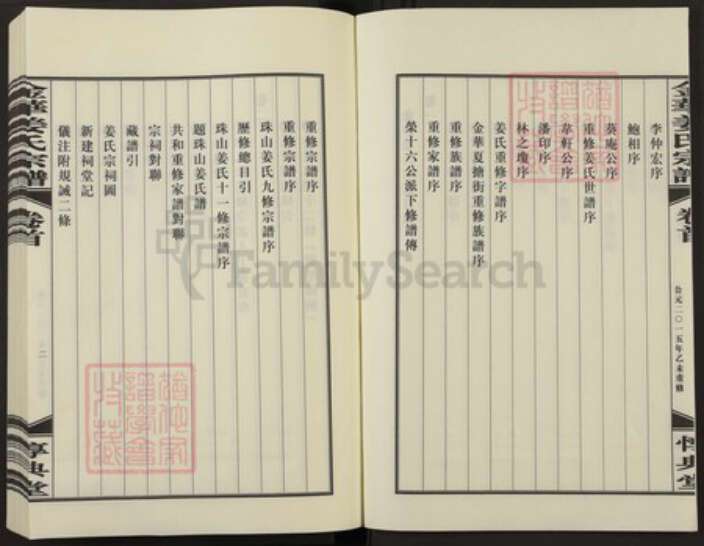 金華姜氏宗譜
卷首
公元二〇一五年乙未重修
惇典堂
李仲宏序
鮑相序
葵庵公序
重修姜氏世譜序
韋軒公序
潘印序
林之瓊序
姜氏重修字譜序
金華夏搪街重修族譜序
重修族譜序
重修家譜序
榮十六公派下修譜傳
重修宗譜序
重修宗譜序
珠山姜氏九修宗譜序
歷修總目引
珠山姜氏十一修宗譜序
題珠山姜氏譜
共和重修家譜對聯
宗祠對聯
藏譜引
姜氏宗祠圖
新建祠堂記
儀注附規誡二條
金華姜氏宗譜
卷首
二
惇典堂
FamilySearch